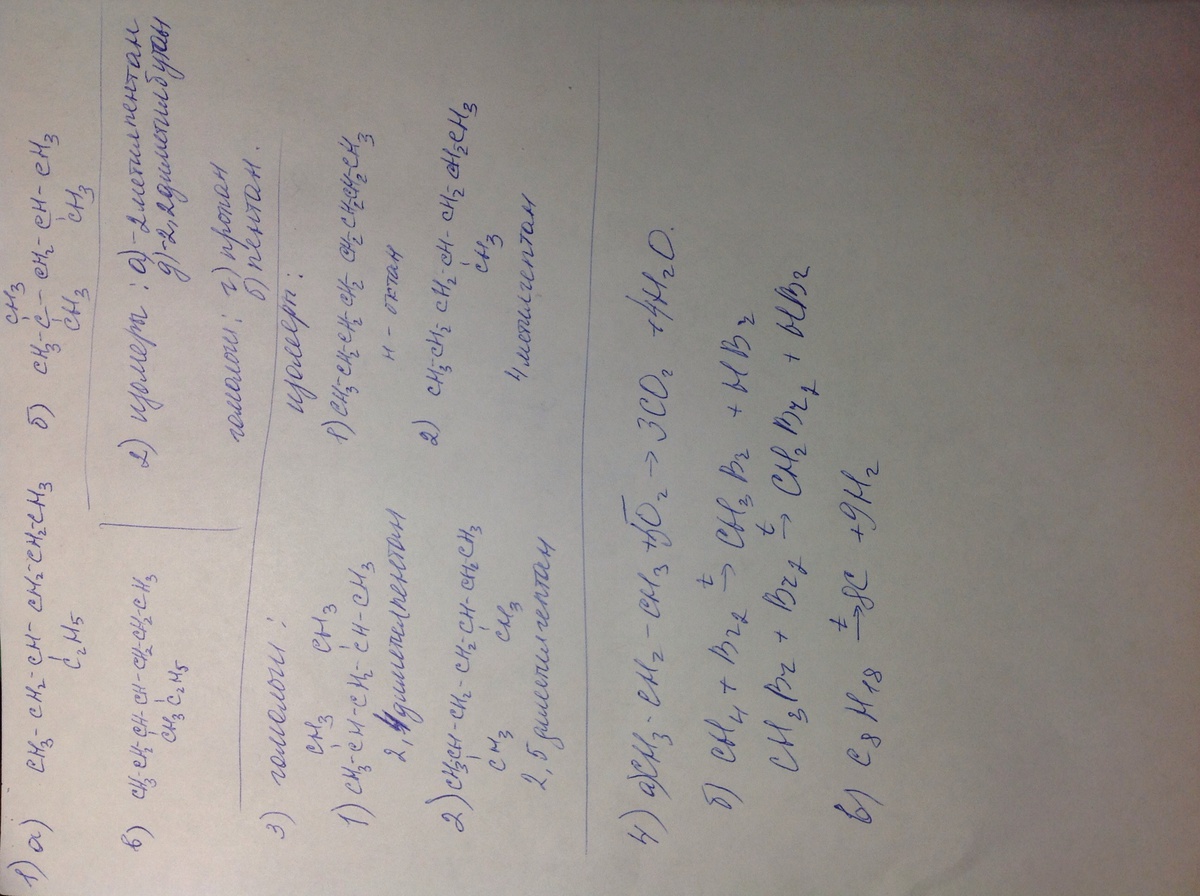 1) а) CH3-CH2-CH-CH2-CH2-CH3
C2H5
CH3
б) CH3-C-CH2-CH-CH3
CH3 CH3
в) CH3-CH2-CH-CH-CH2-CH2-CH3
CH3 C2H5
2) изомеры: а)-2метилпентан
д)-2,2диметилбутан
гомологи: г) пропан
б) пентан.
3) гомологи:
CH3 CH3
1) CH3-CH-CH2-CH-CH3
2,4диметилпентан
2) CH3-CH-CH2-CH2-CH-CH2CH3
CH3 CH3
2,5диметилгептан
изомеры:
1) CH3-CH2-CH2-CH2-CH2-CH2-CH2-CH3
н-октан
2) CH3-CH2-CH2-CH-CH2-CH2-CH3
CH3
4метилгептан
4) а) CH3-CH2-CH3+5O2→3CO2+4H2O.
б) CH4+Br2 t→ CH3Br+HBr
CH3Br+Br2 t→ CH2Br2+HBr
в) C8H18 t→ 8C+9H2